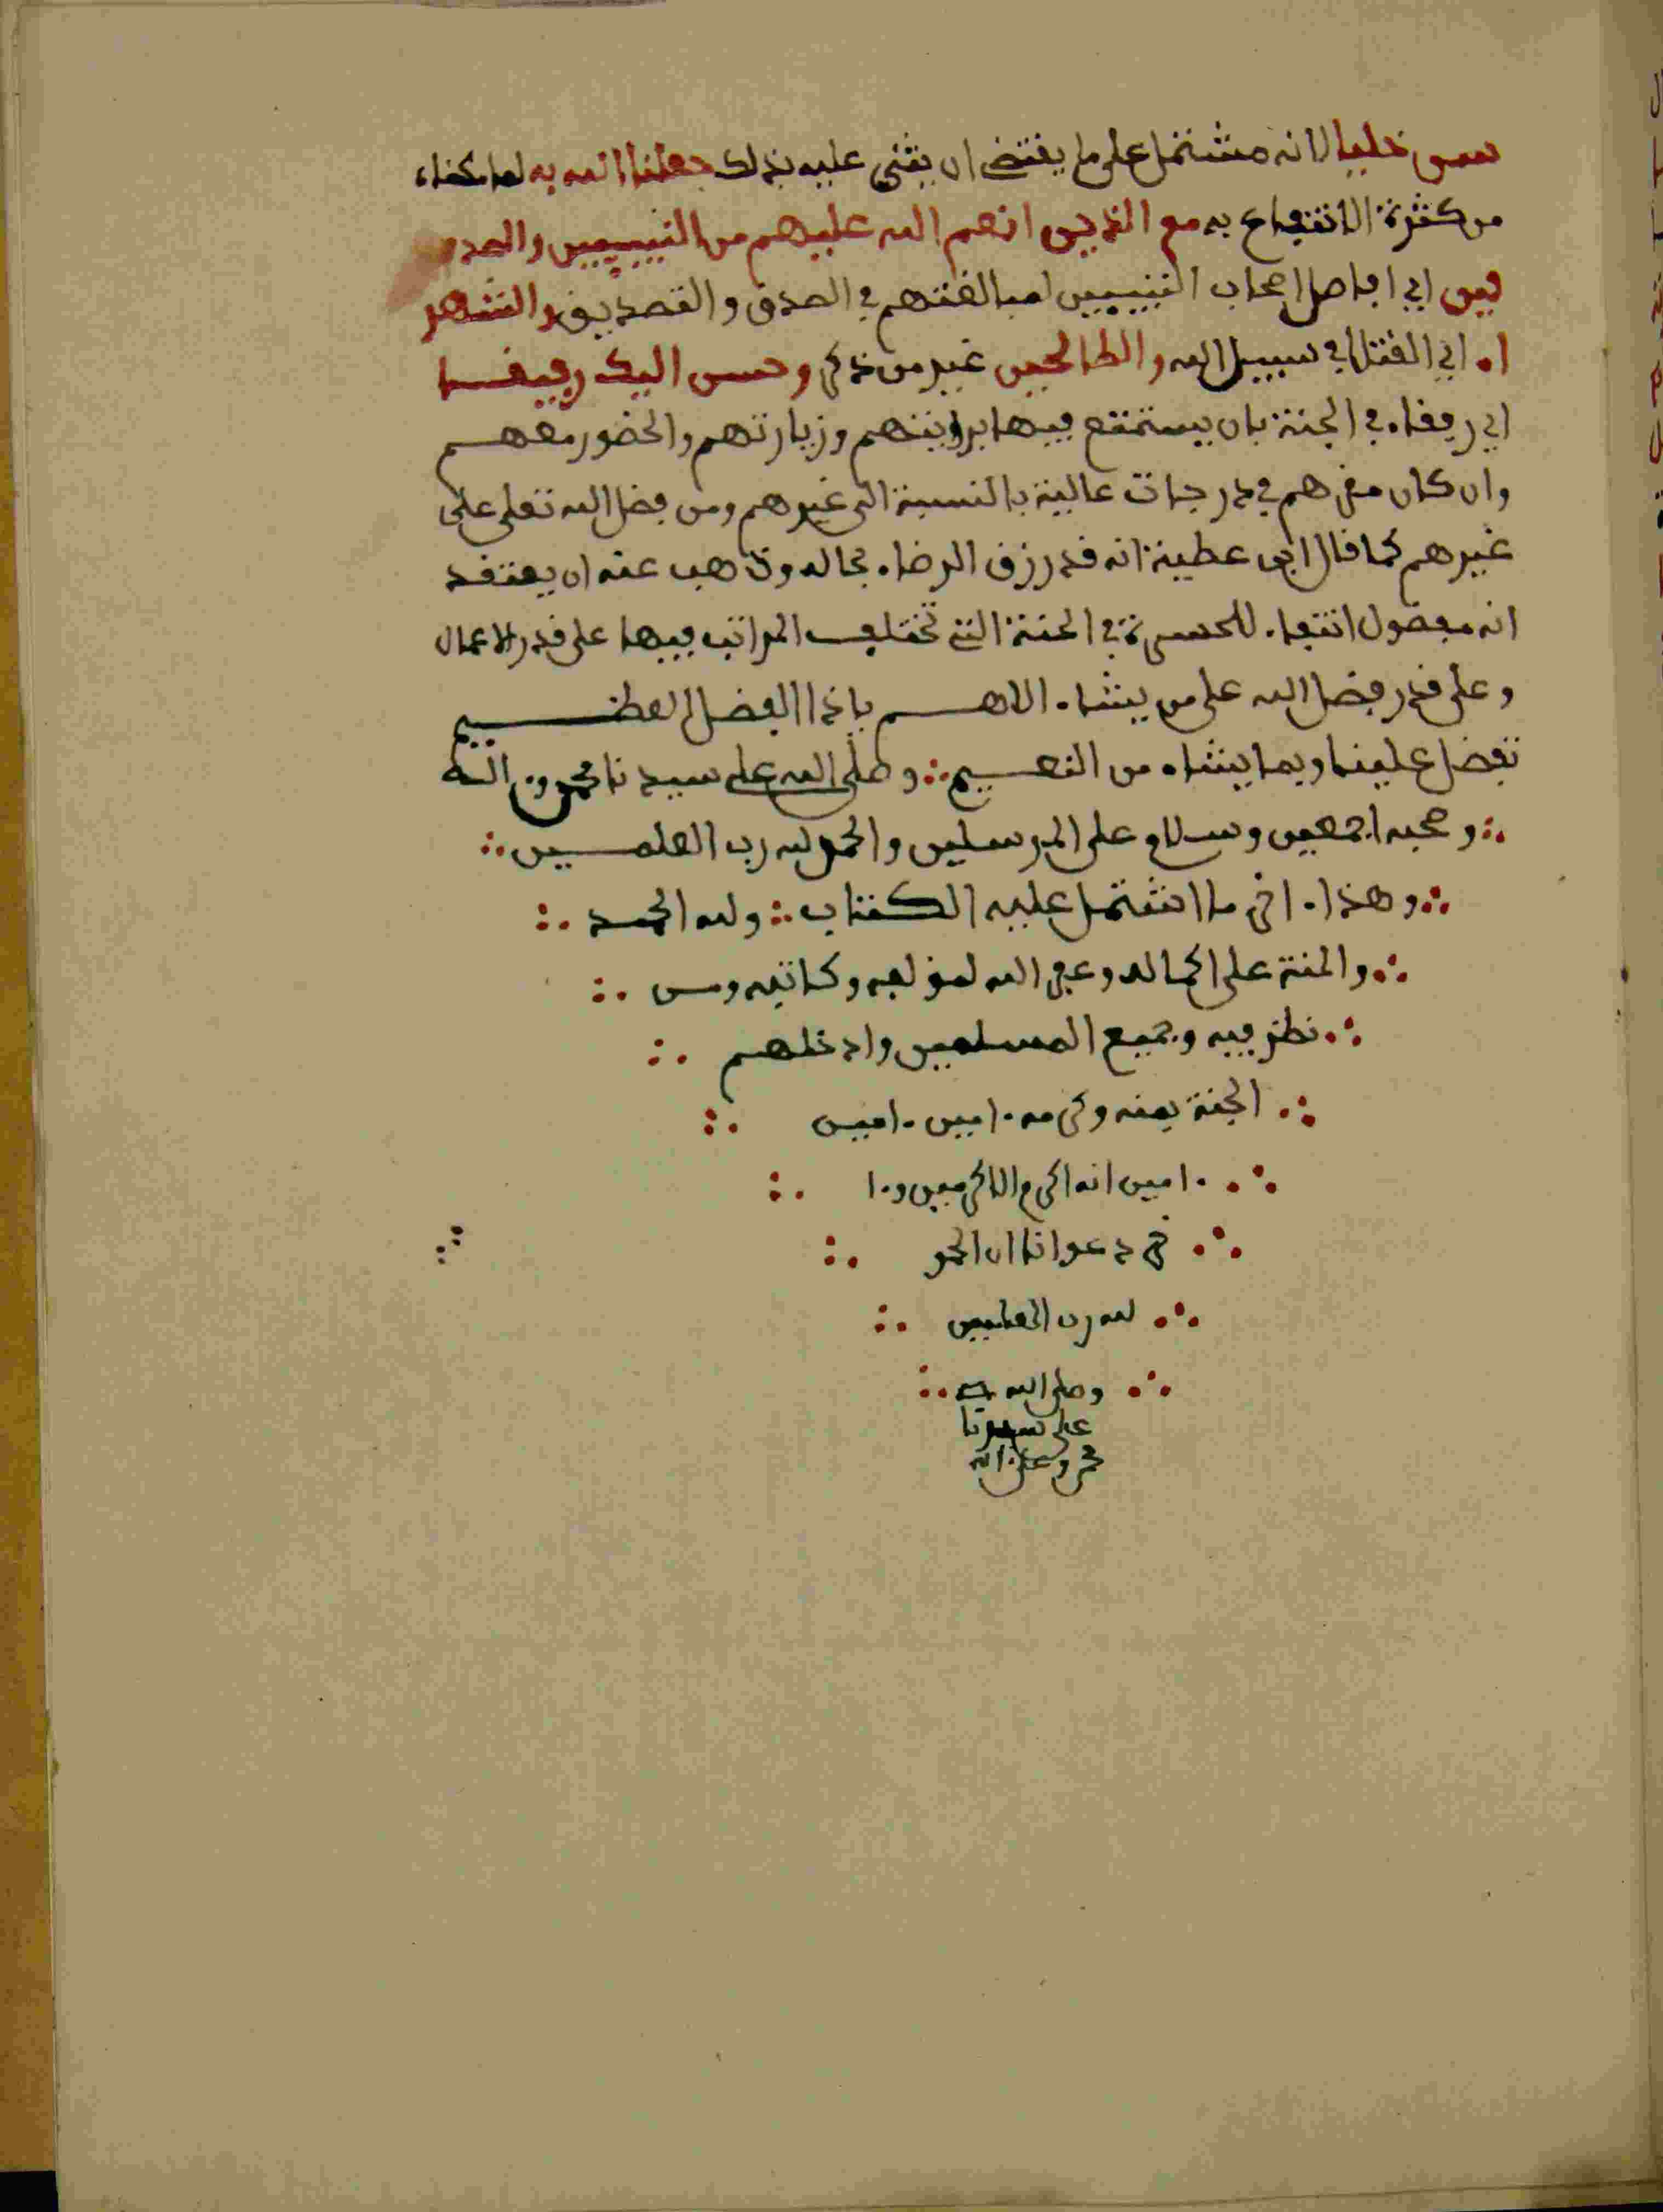 سس خليلا لانه مشتمل على ما يقتضى ان يثنى عليه بذلك جعلنا الله به لما
من كثرة الانتفاع به مع الذين انعم الله عليهم من النبيين والصد
يقين اي افاضل اصحاب النبيين لمبالغتهم في الصدق والتصديق والشهد
ا۰ اي القتلى في سبيل الله والصالحين غير من ذكر وحسن اوليك رفيقـا
اي رفقا۰ في الجنة بان يستمتع فيها برؤيتهم وزيارتهم والحضور معهم
وان كان مقرهم في درجات عالية بالنسبة الى غيرهم ومن فضل الله تعلى على
غيرهم كما قال ابن عطية انه قد رزق الرضا۰ بحاله وذهب عنه ان يعتقد
انه مفضول انتفا۰ للحسرة في الجنة التي تختلف المراتب فيها على قدر الاعمال
وعلى قدر فضل الله على من يشا۰ اللهم ياذا الفضل العظيم
تفضل علينا وبما يشاء من النعيم ؞ وصلى الله على سيدنا محمد و۰اله
؞ وصحبه اجمعين وسلام على المرسلين والحمد لله رب العلمين ؞
؞ وهذا ۰اخر ما اشتمل عليه الكتاب ؞ ولله الحمد ؞
؞ والمنة على اكماله وغفر الله لمؤلفه وكاتبه ومن ؞
؞ نظر فيه وجميع المسلمين وادخلهم ؞
؞ الجنة بمنه وكرمه ۰امين ۰امين ؞
؞ ۰امين انه اكرم الاكرمين و۰ا ؞
؞ خر دعوانا ان الحمد ؞
؞ لله رب العلمين ؞
؞ وصلى الله ؞
على سيدنا
محمد وعلى ۰اله